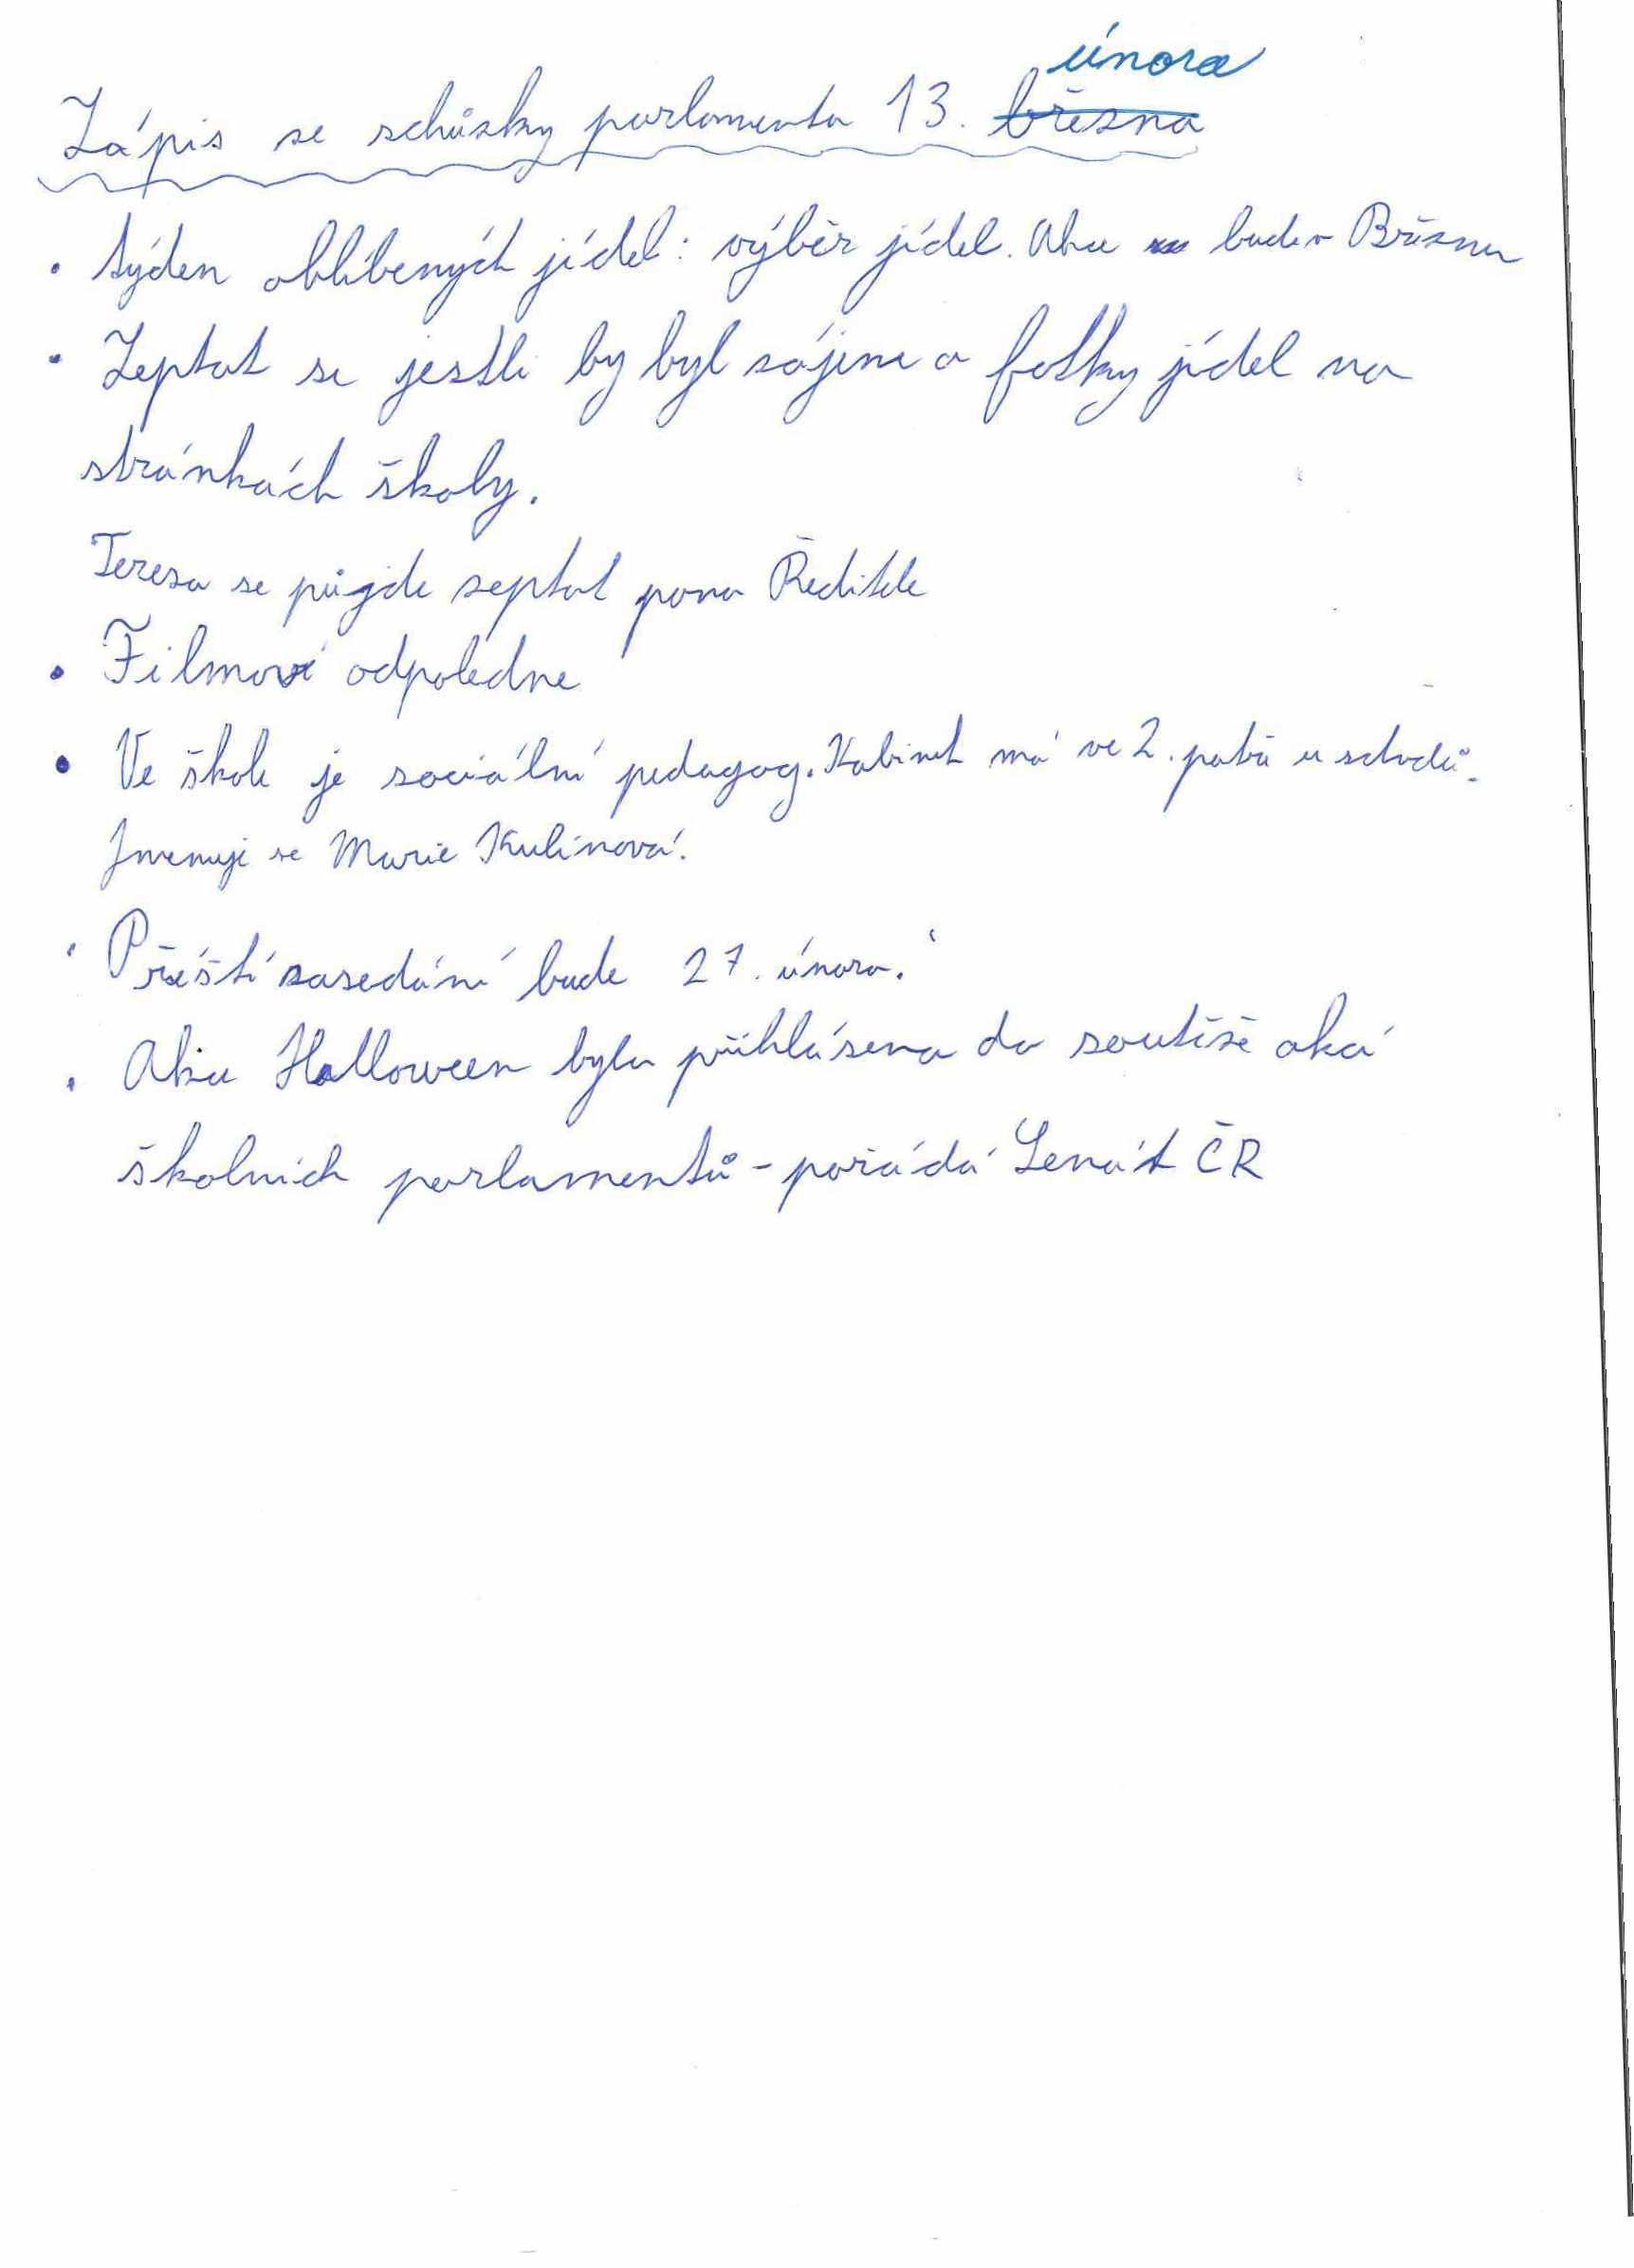 Zápis ze schůzky parlamentu 13. března února
• Týden oblíbených jídel: výběr jídel. Akce bude v Březnu
• Zeptat se jestli by byl zájem o fotky jídel na
stránkách školy.
Tereza se půjde zeptat pana Ředitele
• Filmové odpoledne
• Ve škole je sociální pedagog. Kabinet má ve 2. patře u schodů.
Jmenuji se Marie Kulinová.
• Příští zasedání bude 27. února.
• Akce Halloween byla přihlášena do soutěže akcí
školních parlamentů - pořádá Senát ČR